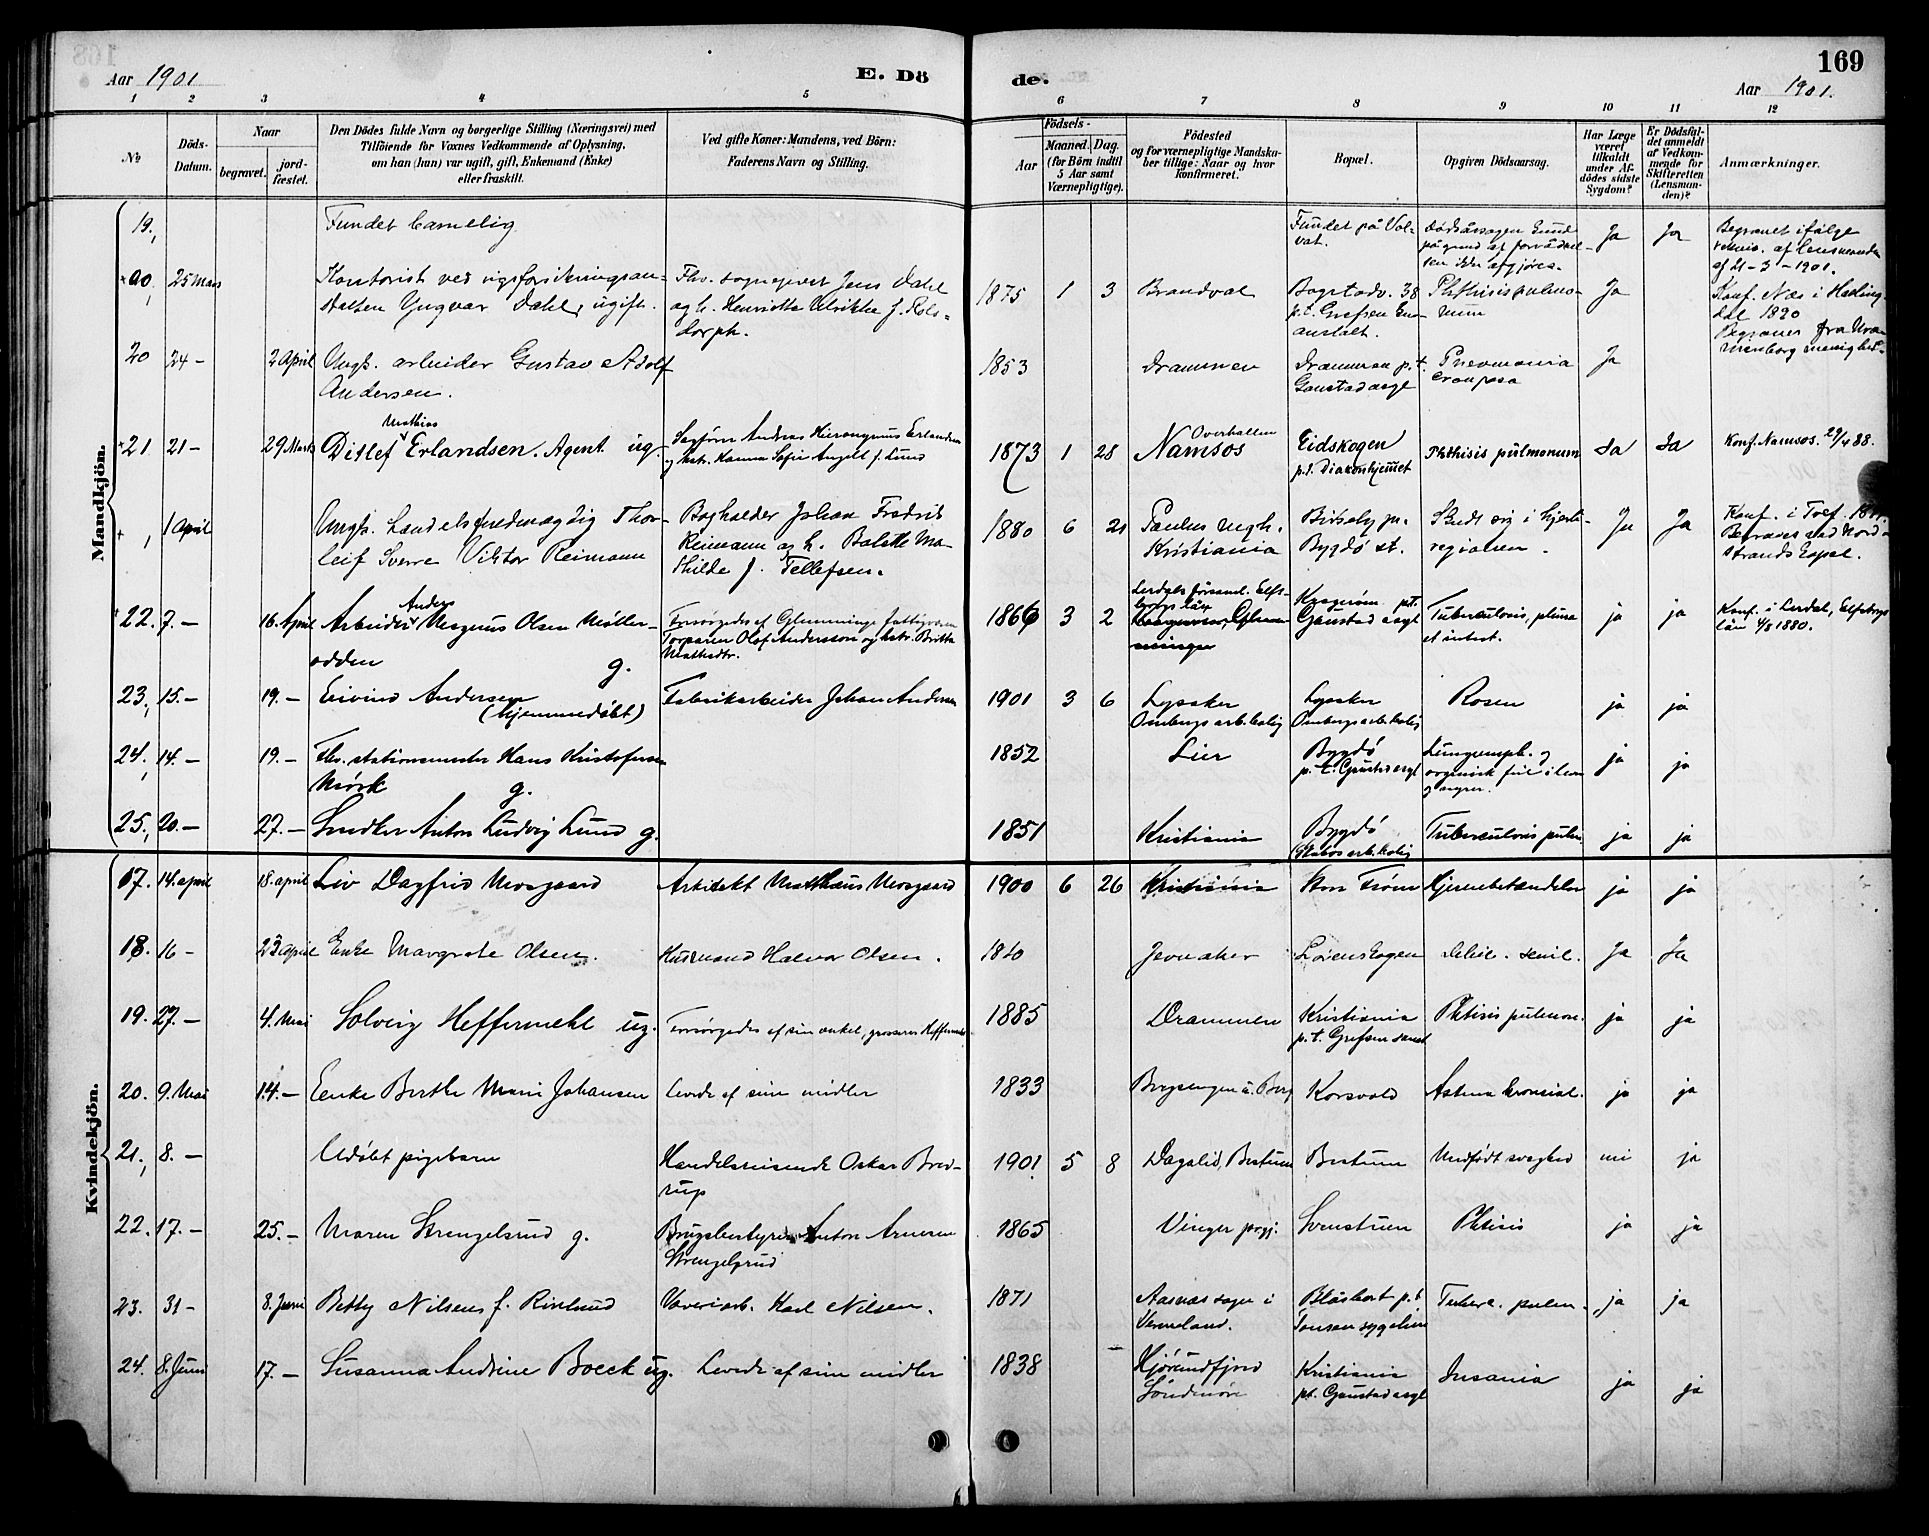 Aar 1901
E. Dö
de.
169
Aar 1901.
1 2 3 4 5 6 7 8 9 10 11 12
No
Döds-
Datum.
Naar
begravet.
jord-
fæstet.
Den Dödes fulde Navn og borgerlige Stilling (Næringsvei) med
Tilföiende for Voxnes Vedkommende af Oplysning,
om han (hun) var ugift, gift, Enkemand (Enke)
eller fraskilt.
Ved gifte Koner: Mandens, ved Börn:
Faderens Navn og Stilling.
Födsels-
Aar
Maaned. Dag.
(for Börn indtil
5 Aar samt
Værnepligtige).
Födested
og for værnepligtige Mandska-
ber tillige: Naar og hvor
konfirmeret.
Bopæl.
Opgiven Dödsaarsag.
Har Læge
været
tilkaldt
under Af-
dödes sidste
Sygdom?
Er Dödsfal-
det anmeldt
af Vedkom-
mende for
Skifteretten
(Lensman-
den)?
Anmærkninger.
Mandkjön.
19, Fundet barnelig Fundet på Vol-
vat. dødsårsagen Ja Ja Begravet ifølge
af 21-3-1901.
20, 25 Mars Kontorist ved rigsforsikringsan-
stalten Yngvar Dahl, ugift. Fhv. sogneprest Jens Dahl
og h. Henriette Ulrikke f. Rols-
dorph. 1875 1 3 Brandval Bogstadv. 38
p.t. Grefsen
anstalt. Phthisis pulmo-
num Ja Konf. Næs i Halling-
dal 1890
Begraves fra Ura-
nienborg menighed.
20 24 - 2 April Ungk. arbeider Gustav Adolf
Andersen. 1853 Drammen Drammen p.t.
Gaustad asyl Pneumonia
crouposa Ja
21 21 - 29 Marts Ditlef Mathias Erlandsen. Agent ug. Sagfører Andreas Hieronymus Erlandsen
og hstr. Hanna Sofie Angell f. Lund 1873 1 28 Overhallen
Namsos Eidskogen
p.t. Diakonhjemmet Phthisis pulmonum Ja Ja Konf. Namsos. 29/4 88.
1 April Ungk. handelsfuldmægtig Thor-
leif Sverre Viktor Reimann Bogholder Johan Fredrik
Reimann og h. Bolette Ma-
thilde f. Tellefsen. 1880 6 21 Paulus mgh.
Kristiania
Bygdø st. Skudt sig i hjerte-
regionen. Ja Ja Konf. i
Begraves ved Nord-
strands kapel.
22. 7. - 16. April Arbeider Anders Magnus Olsen Møller-
odden g. Forsørgedes af Glemminge fattigvæsen
Torparen Olof Andersson og hstr. Britta
1866 3 2 Gaustad asyl Tuberculosis, pulm.
et intest. ja ja Konf. i Lerdal, Elfsborgs
län 4/8 1880.
23, 15. - 19. - Eivind Andersen
(hjemmedøbt) Fabrikarbeider Johan Andersen 1901 3 6 Lysaker
arb.bolig Lysaker
arb.bolig Rosen ja ja
24, 14. - 19. - Fhv. stationsmester Hans Kristofersen
Mörk g. 1852 Lier Bygdö
p.t. Gaustad asyl organisk ja ja
25, 20. - 27. - Snedker Anton Ludvig Lund g. 1851 Kristiania Bygdö
arb.bolig Tuberculosis pulm. ja ja
Kvindekjön.
17. 14. april 18. april Liv Dagfrid Mosgaard Arkitekt Matthæus Mosgaard 1900 6 26 Kristiania Store Frøen Hjernebetændelse ja ja
18. 16 - 23 april Enke Margrete Olsen. Husmand Halvor Olsen. Jevnaker Løienskogen Debil. senil. Ja Ja
19. 27. - 4. Mai Solveig Heffermehl ug. Forsørgedes af sin onkel, grosserer Heffermehl 1885 Drammen Kristiania
p.t. Grefsen sanat Phtisis pulmon. ja ja
20. 9. Mai 14. - Enke Berthe Marie Johansen Levede af sine midler 1833 Korsvold Astma bronsial. ja ja
21, 8. - Udøbt pigebarn Handelsreisende Oskar Bred-
rup 1901 5 8 Dagalid, Bestum Bestum Medfødt svaghed nei ja
22. 17. - 25. - Maren Strengelsrud g. Brugsbestyrer Anton Arnesen
Strengelsrud 1865 Vinger prgj. Svenstuen Phtisis ja ja
23. 31 - 8. Juni Betty Nilsens f. Roselund Væveriarb. Karl Nilsen. 1871 Aasnæs sogn i
Vermeland. p.t.
Tonsen sygehus Tuberc. pulm. ja ja
24. 8. Juni 17. - Susanna Andrine Boeck ug. Levede af sine midler 1838 Hjørundfjord
Söndmöre Kristiania
pt. Gaustad asyl Insania ja ja